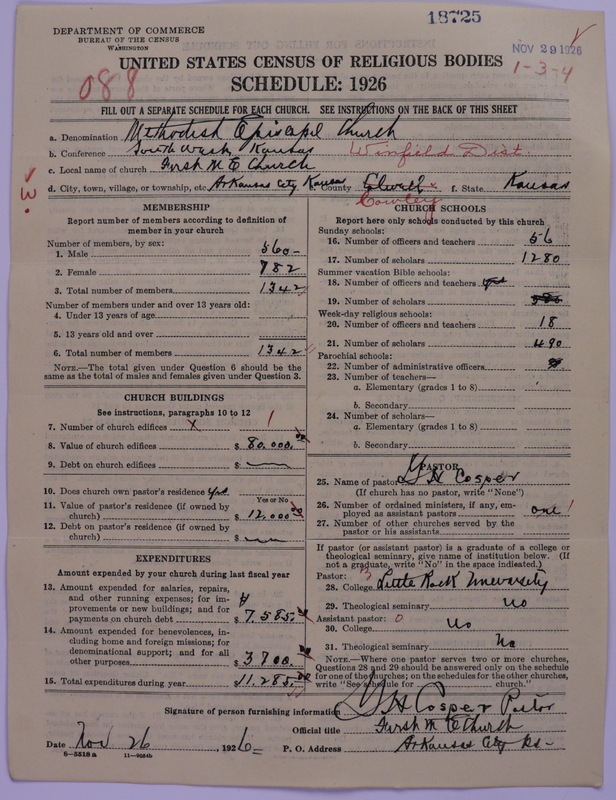 18725
DEPARTMENT OF COMMERCE
BUREAU OF THE CENSUS
WASHINGTON
NOV 29 1926
UNITED STATES CENSUS OF RELIGIOUS BODIES
1-3-4
088
SCHEDULE: 1926
FILL OUT A SEPARATE SCHEDULE FOR EACH CHURCH. SEE INSTRUCTIONS ON THE BACK OF THIS SHEET
a. Denomination Methodist Episcopal Church
b. Conference South West Kansas Winfield Dist
c. Local name of church First M E Church
d. City, town, village, or township, etc Arkansas City Kansas County Cowley f. State Kansas
MEMBERSHIP
Report number of members according to definition of member in your church
Number of members, by sex:
1. Male 560
2. Female 782
3. Total number of members 1342
Number of members under and over 13 years old:
4. Under 13 years of age
5. 13 years old and over
6. Total number of members 1342
NOTE.—The total given under Question 6 should be
same as the total of males and females given under Question 3.
CHURCH BUILDINGS
See instructions, paragraphs 10 to 12
7. Number of church edifices X 1
8. Value of church edifices $ 80,000.00
9. Debt on church edifices $
10. Does church own pastor's residence yes
Yes or No
11. Value of pastor's residence (if owned by
church) $ 12,000.00
12. Debt on pastor's residence (if owned by
church) $
EXPENDITURES
Amount expended by your church during last fiscal year
13. Amount expended for salaries, repairs,
and other running expenses; for im-
provements or new buildings; and for
payments on church debt $ 7,585.
14. Amount expended for benevolences, in-
cluding home and foreign missions; for
denominational support; and for all
other purposes $ 3700.
15. Total expenditures during year $ 11,285.
CHURCH SCHOOLS
Report here only schools conducted by this church
Sunday schools:
16. Number of officers and teachers 56
17. Number of scholars 1280
Summer vacation Bible schools:
18. Number of officers and teachers
19. Number of scholars
Week-day religious schools:
20. Number of officers and teachers 18
21. Number of scholars 490
Parochial schools:
22. Number of administrative officers
23. Number of teachers—
a. Elementary (grades 1 to 8)
b. Secondary
24. Number of scholars—
a. Elementary (grades 1 to 8)
b. Secondary
PASTOR
25. Name of pastor G H Cosper
(If church has no pastor, write "None")
26. Number of ordained ministers, if any, em-
ployed as assistant pastors one 1
27. Number of other churches served by the
pastor or his assistants
If pastor (or assistant pastor) is a graduate of a college or
theological seminary, give name of institution below. (If
not a graduate, write "No" in the space indicated.)
Pastor: 3
28. College Little Rock University
29. Theological seminary No
Assistant pastor: 0
30. College No
31. Theological seminary No
NOTE.—Where one pastor serves two or more churches,
Questions 28 and 29 should be answered only on the schedule
for one of the churches; on the schedules for the other churches,
write "See schedule for ______ church."
Signature of person furnishing information G H Cosper Pastor
Official title First M E Church
Date Nov 26, 1926 P. O. Address Arkansas City Ks
8-5518a 11-9024b